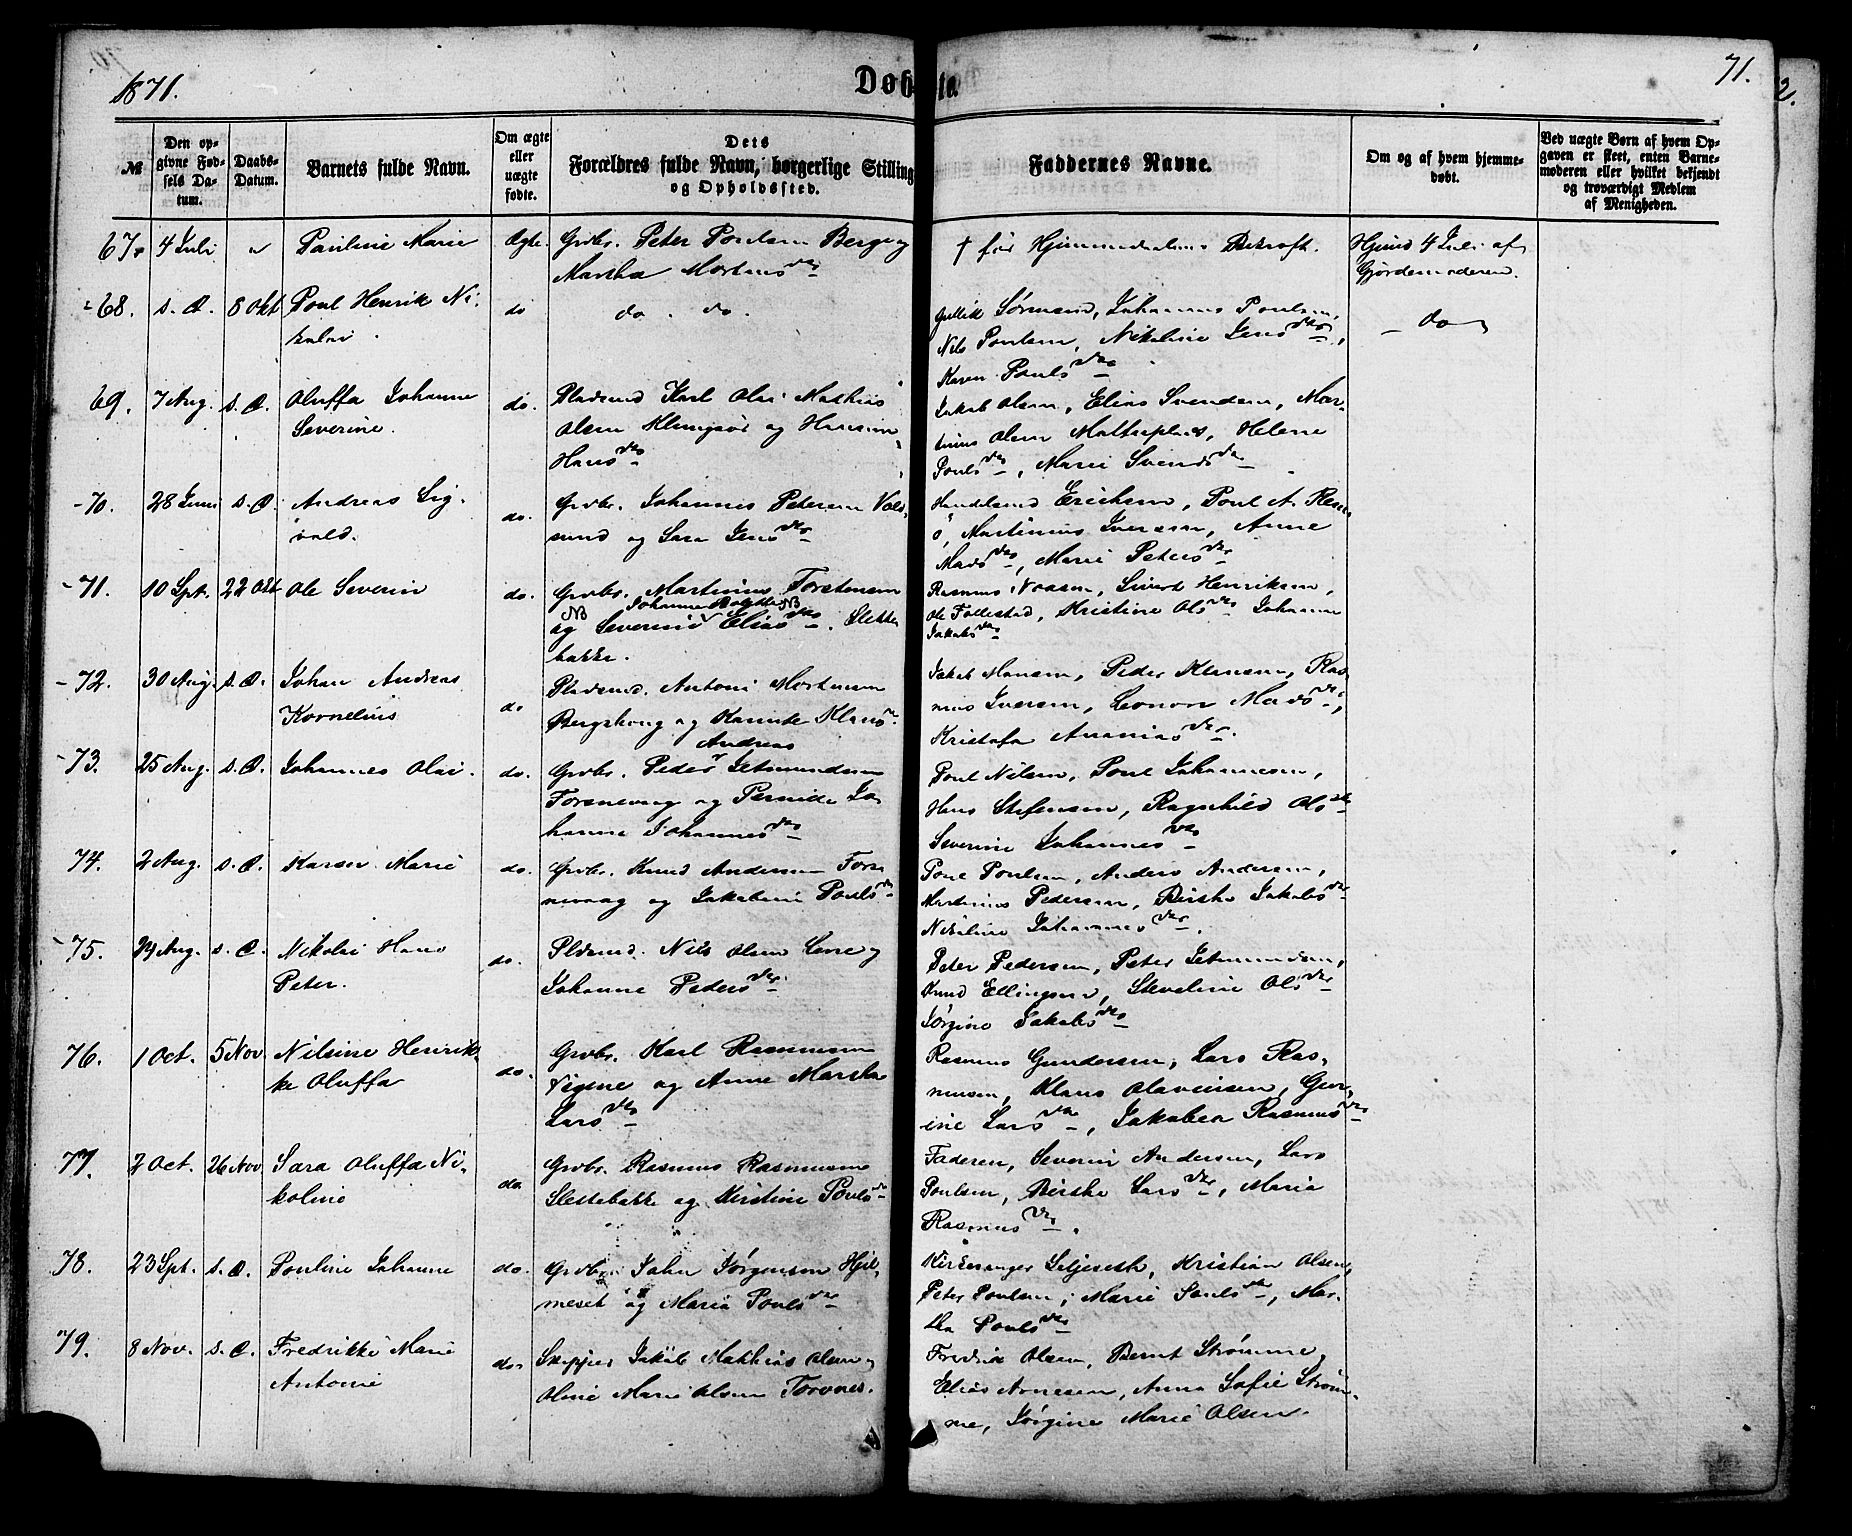 1871.
Døbte.
71.
2.
№
Den op-
givne Fød-
sels Da-
tum.
Daabs-
Datum.
Barnets fulde Navn.
Om ægte
eller
uægte
fødte.
Dets
Forældres fulde Navn, borgerlige Stilling
og Opholdssted.
Faddernes Navne.
Om og af hvem hjemme-
døbt.
Ved uægte Børn af hvem Op-
gaven er skeet, enten Barne-
moderen eller hvilket bekjendt
og troværdigt Medlem
af Menigheden.
67. 4 Juli Pauline Marie Ægte. Grdbr. Peter Poulsen Berge og
Martha Mortensdtr
† før Hjemmedaabens Bekræft.
Hjemd 4 Juli af
Gjordemoderen.
68. s. D. 8 Okt Poul Henrik Ni-
kolai. do do. do.
Gullik Sørmund, Johannes Poulsen,
Nils Poulsen, Nikoline Jensdtr,
Karen Poulsdtr
do
69. 7 Aug. s. D. Oluffa Johanne
Severine. do. Pladsmd Karl Olai Mathias
Olsen Klungsør og
Hansdtr
Jakob Olsen, Elias Svendsen, Mar-
tinus Olsen Helene
Poulsdtr, Marie Svendsdtr.
70. 28 Juni s. D. Andreas Sig-
vald. do. Grdbr. Johannes Petersen Vold-
sund og Sara Jensdtr
Handelsmd Eriksen, Poul A. Rems-
ø, Martinus Iversen, Anne
Madsdtr, Marie Petersdtr
71. 10 Spt. 22 Okt Ole Severin do. Grdbr. Martinus Torstensen
NB Johanne NB
og Severine Eliasdtr. Slette-
bakke.
Rasmus Noasen, Sivert Henriksen,
Ole Follestad, Kristine Olsdtr Johanne
Jakobsdtr
72. 30 Aug. s. D. Johan Andreas
Kornelius do Pladsmd. Antoni Mortensen
Bergshoug og Klausdtr
Jakob Monsen, Peder Klausen, Ras-
mus Iversen, Leonor Madsdtr,
Kristofa Ananiasdtr.
73. 25 Aug. s. D. Johannes Olai. do. Andreas
Grdbr. Peder Jetmundsen
Torsnevaag og Pernille Jo-
hanne Johannesdtr
Poul Nilsen, Poul Johannesen,
Hans Steffensen, Ragnhild Olsdtr
Severine Johannesdtr
74. 2 Aug. s. D. Karen Marie do. Grdbr. Knud Andersen Tors-
nevaag og Jakobine Poulsdtr
Poul Poulsen, Anders Andersen,
Martinus Pedersen, Birthe Jakobsdtr
Nikoline Johannesdtr.
75. 29 Aug. s. D. Nikolai Hans
Peter. do. Pldsmd. Nils Olsen og
Johanne Pedersdtr.
Peter Pedersen, Peter Jetmundsen,
Knud Ellingsen, Steveline Olsdtr
Jørgine Jakobsdtr
76. 1 Oct. 5 Nov. Nilsine Henrik-
ke Oluffa do. Grdbr. Karl Rasmussen
Vigene og Anne Martha
Larsdtr
Rasmus Gundersen, Lars Ras-
mussen, Klaus Olavensen, Gur-
ine Larsdtr, Jakobea Rasmusdtr
77. 2 Oct. 26 Nov. Sara Oluffa Ni-
koline do. Grdbr. Rasmus Rasmussen
Slettebakke og Kirstine Poulsdtr
Faderen, Severin Andersen, Lars
Poulsen, Birthe Larsdtr, Maria
Rasmusdtr.
78. 23 Spt. s. D. Pouline Johanne do. Grdbr. John Jørgensen Hjel-
meset og Maria Poulsdtr
Kirkesanger Liljeseth, Kristian Olsen,
Peter Poulsen, Marie Poulsdtr, Mar-
tha Poulsdtr
79. 8 Nov. s. D. Fredrikke Marie
Antonie do. Skipper Jakob Mathias Olsen og
Oline Marie Olsen Torvnes.
Fredrik Olsen, Bernt Strømme,
Elias Arnesen, Anna Sofie Strøm-
me, Jørgine Marie Olsen.